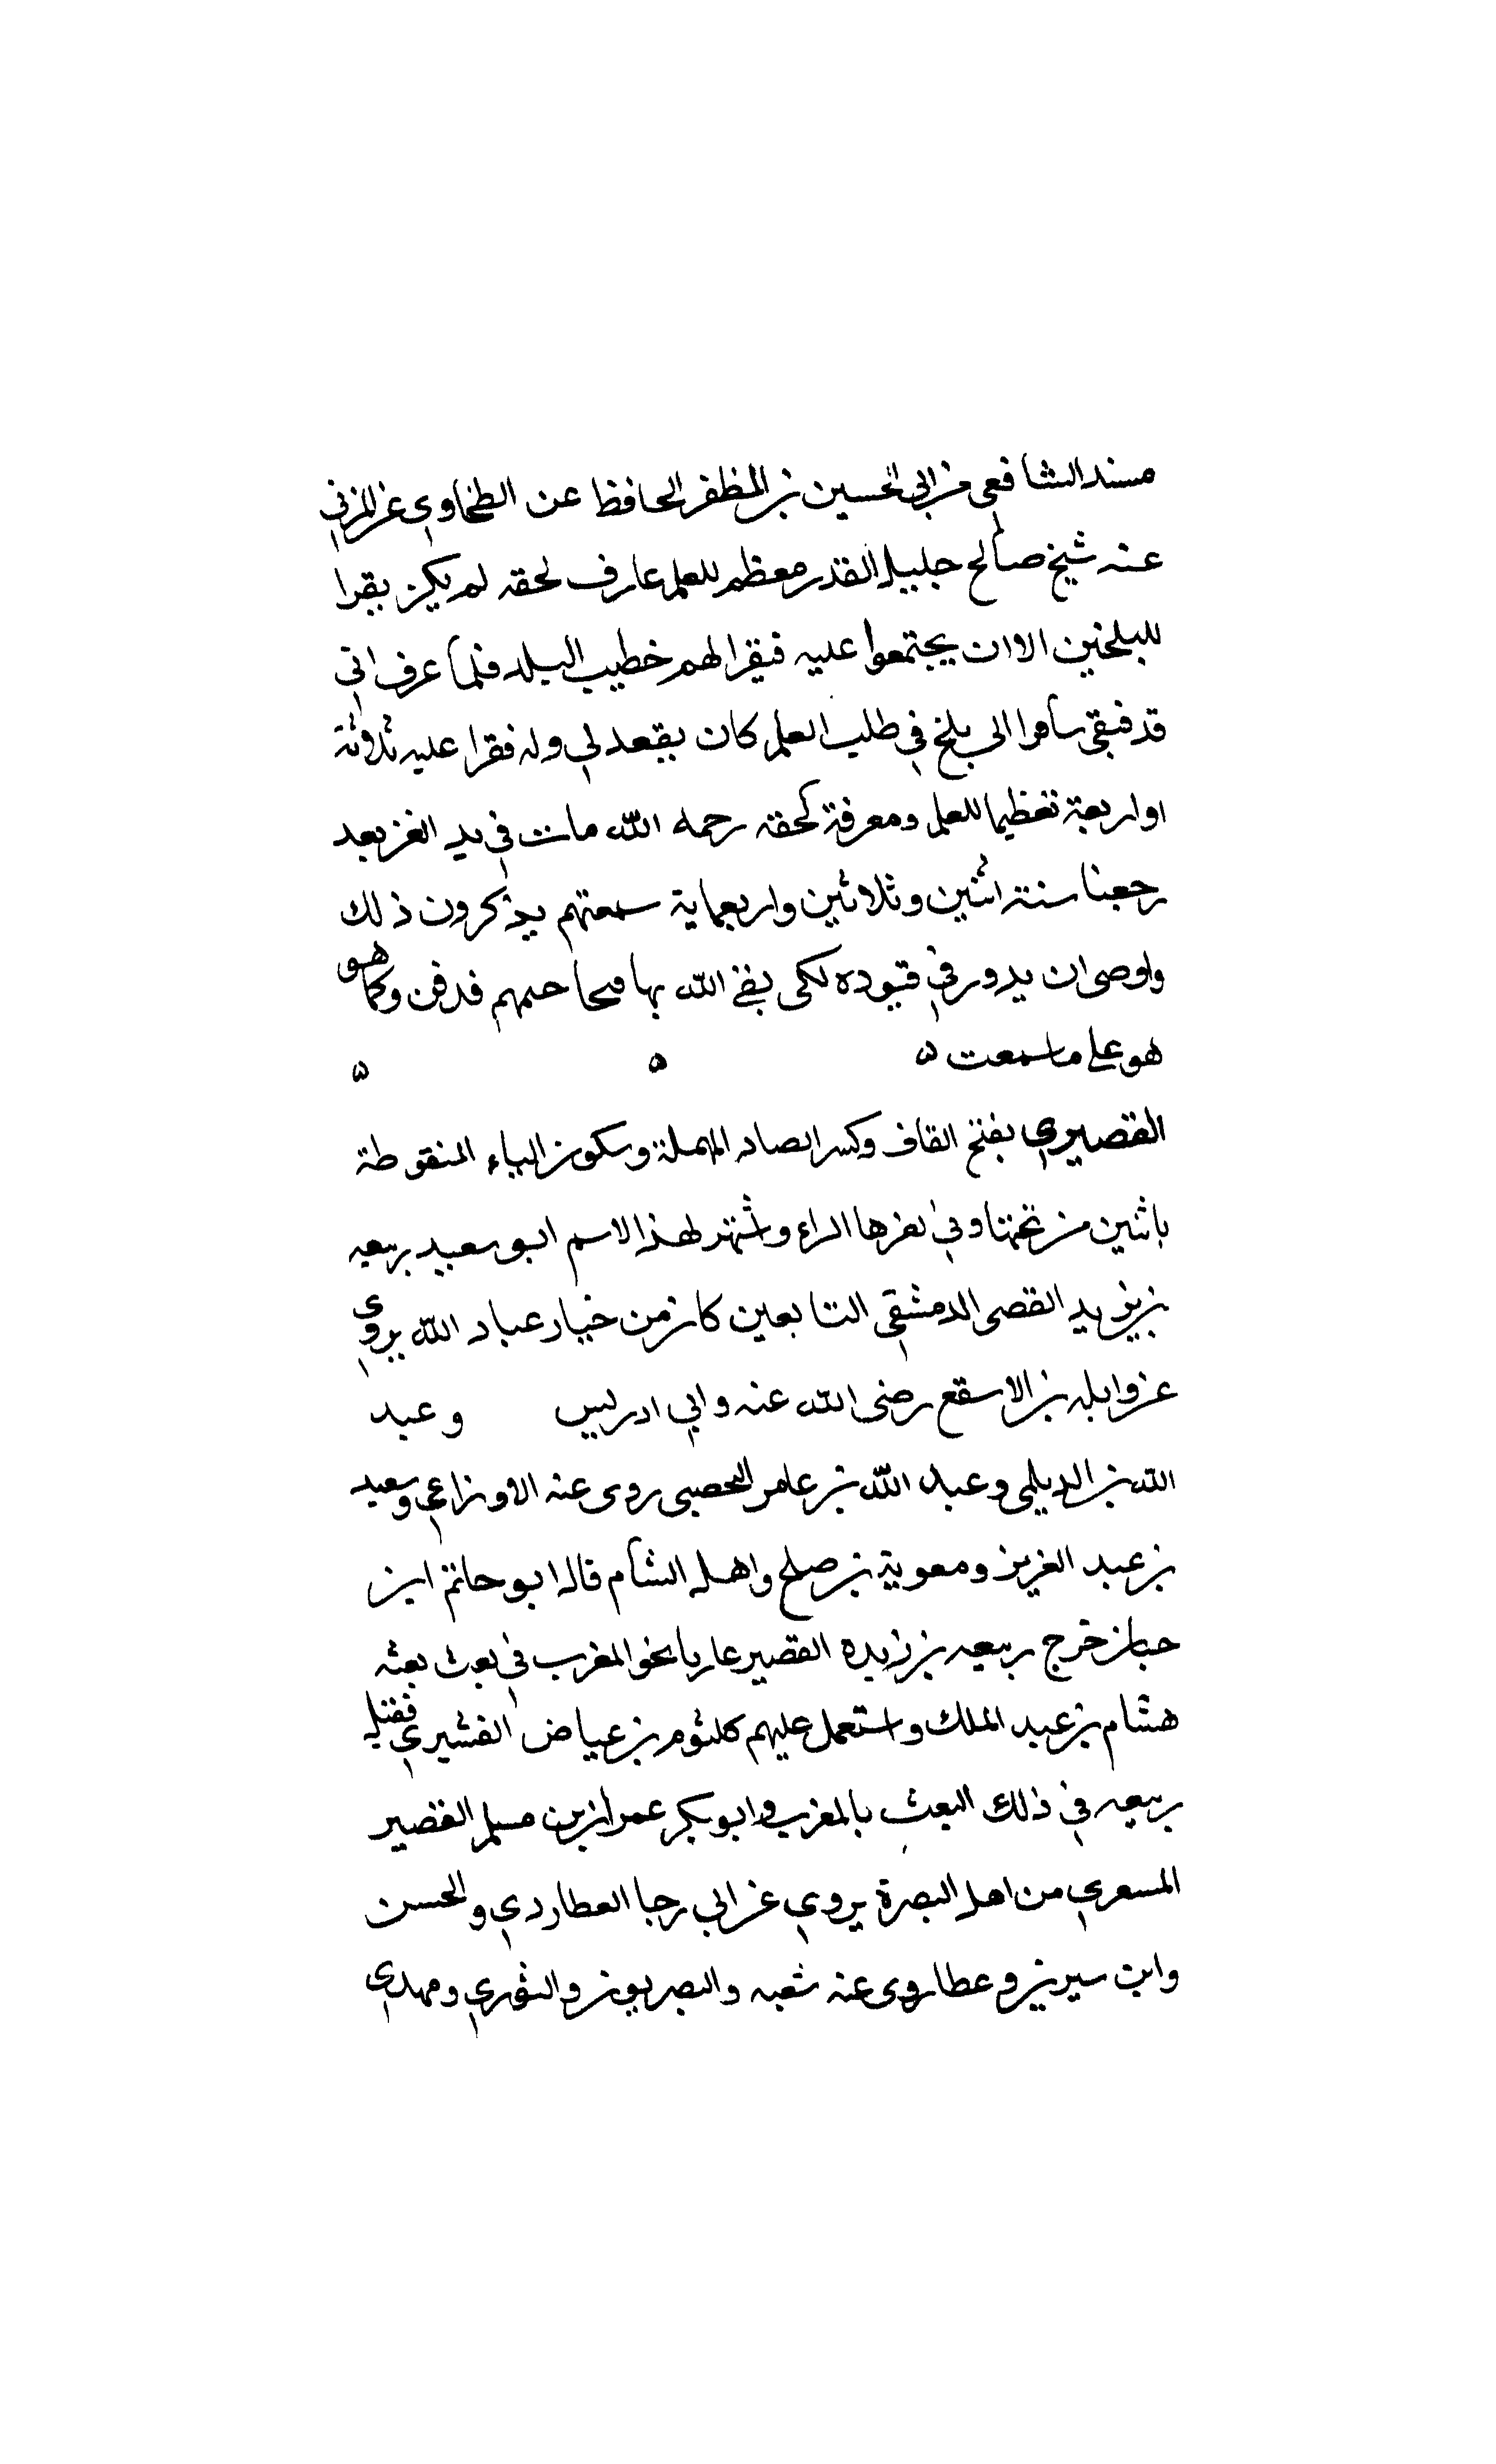 مسند الشافعي من ابي الحسين بن المظفر الحافظ عن الطحاوي عن المزني
عنه شيخ صالح جليل القدر معظم للعلم عارف لحقه لم يكن يقرا
للبلخين الا ان يجتمعوا عليه فيقرا لهم خطيب البلد فلما عرف اني
قد فبقي سافرا الى بلخ في طلب العلم كان يقعد لي وله فقرا عليه ثلاثة
او اربعة تعظيما للعلم ومعرفة لحقه رحمه الله مات في يد الغز بعد
رجعنا سنة اثنين وثلاثين واربعماية سمعتهم يذكرون ذلك
واوصى ان يدور في قيوده لكى بها فدفن وكما هو
هو على ما سمعت ٥ ٥ ٥
القصيري بفتح القاف وكسر الصاد المهملة وسكون الياء المنقوطة
باثنين من تحتها وفي اخرها الراء واشتهر لهذا الاسم ابو سعيد ربيعه
بن يزيد القصى الدمشقي التابعين كان من خيار عباد الله يروي
عن وابله بن الاسقع رضى الله عنه وابي ادريس وعبد
الله بن الديلمي وعبد الله بن عامر اليحصبى روى عنه الاوزاعي وسعيد
بن عبد العزيز ومعوية بن صلح واهل الشام قال ابو حاتم ابن
حبان خرج ربيعه بن زايده القصير عاريا نحو المغرب في بعث بعثه
هشام بن عبد الملك واستعمل عليهم كلثوم بن عياض القشيري فقتل
ربيعه في ذلك البعث بالمغرب وابو بكر عمران بن مسلم القصير
المسعري من اهل البصرة يروي عن ابي رجا العطاردي والحسن
وابن سيرين وعطا روى عنه شعبه والبصريون والثوري ومهدي